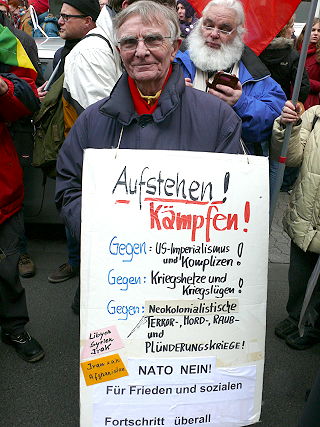 Aufstehen!
Kämpfen!
Gegen: US-Imperialismus
und Komplizen!
Gegen: Kriegshetze und
Kriegslügen!
Gegen: Neokolonialistische
TERROR-, MORD-, RAUB-
und
PLÜNDERUNGSKRIEGE!
Libyen
Syrien
Irak
Iran
Afghanistan
NATO NEIN!
Für Frieden und sozialen
Fortschritt überall